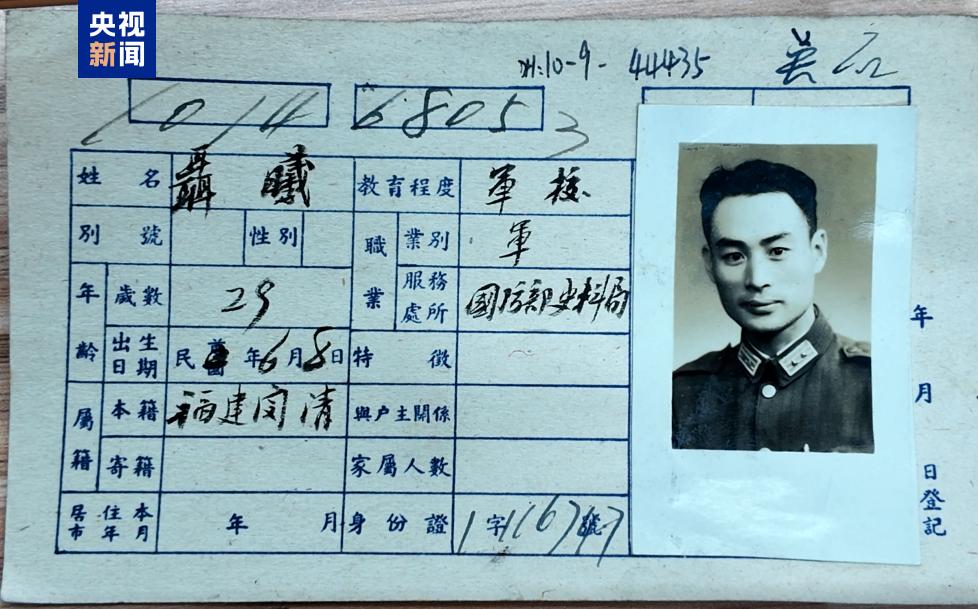 央视
新闻
10-9-44435
1014 6805 3
姓名 聶曦 教育程度 軍校
別號 性別 職業 業別 軍
年齡 歲數 29 服務處所 國防部史料局
出生日期 民國 年6月8日 特徵
屬籍 本籍 福建閩清 與戶主關係
寄籍 家屬人數
居住本市年月 年 月 身份證 1字116747號
年 月 日登記